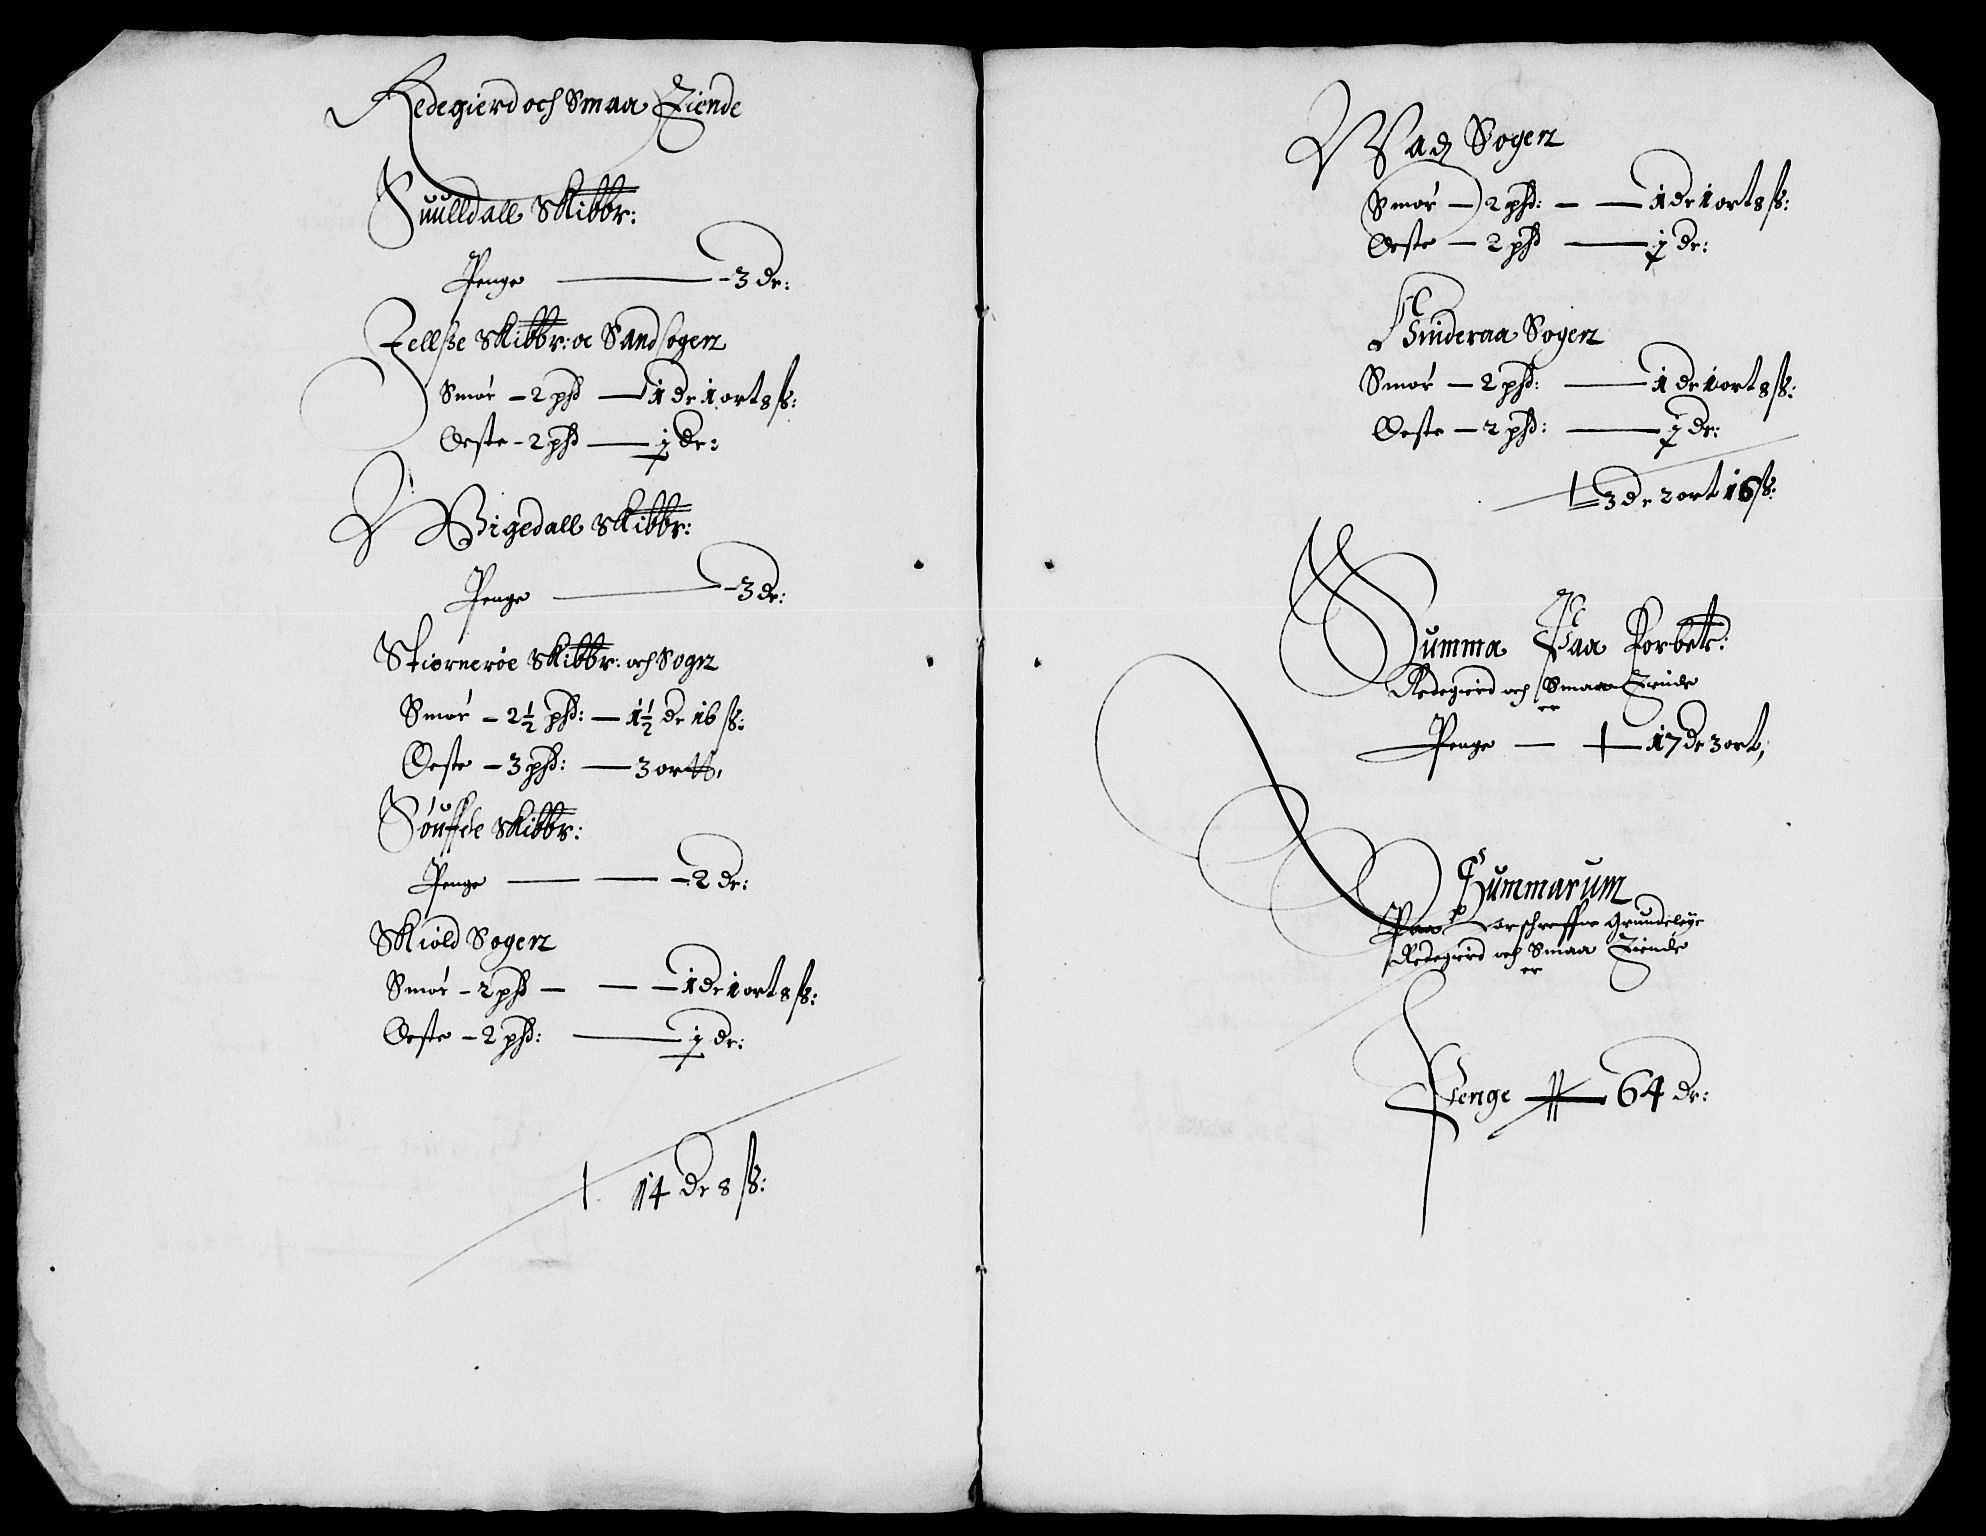 Redegierd och Smaa Tiende
Suulldall Skibbr:
Penge — 3 dr:
Jellsse Skibbr: oc Sandsogen
Smør — 2 phd — 1 dr 1 ort 8 ß:
Oeste — 2 phd — ½ dr:
Wigedall Skibbr:
Penge — 3 dr:
Stiernerøe Skibbr: och Sogn
Smør — 2½ phd: — 1½ dr 16 ß:
Oeste — 3 phd: — 3 ortt,
Søuffde Skibbr:
Penge — 2 dr:
Skiold Sogen
Smør — 2 phd — 1 dr 1 ort 8 ß:
Oeste — 2 phd: — ½ dr:
14 dr 8 ß:
Wadz Sogen
Smør — 2 phd: — 1 dr 1 ort 8 ß:
Oeste — 2 phd — ½ dr:
Hinderaa Sogen
Smør — 2 phd: — 1 dr 1 ort 8 ß:
Oeste — 2 phd: — ½ dr:
3 dr 2 ort 16 ß:
Summa Paa Forbet:
Redegierd och Smaa Tiende
er
Penge — 17 dr 3 ort,
Summarum
Paa Forschreffne Grundeleye
Redegierd och Smaa Tiende
er
Penge — 64 dr: